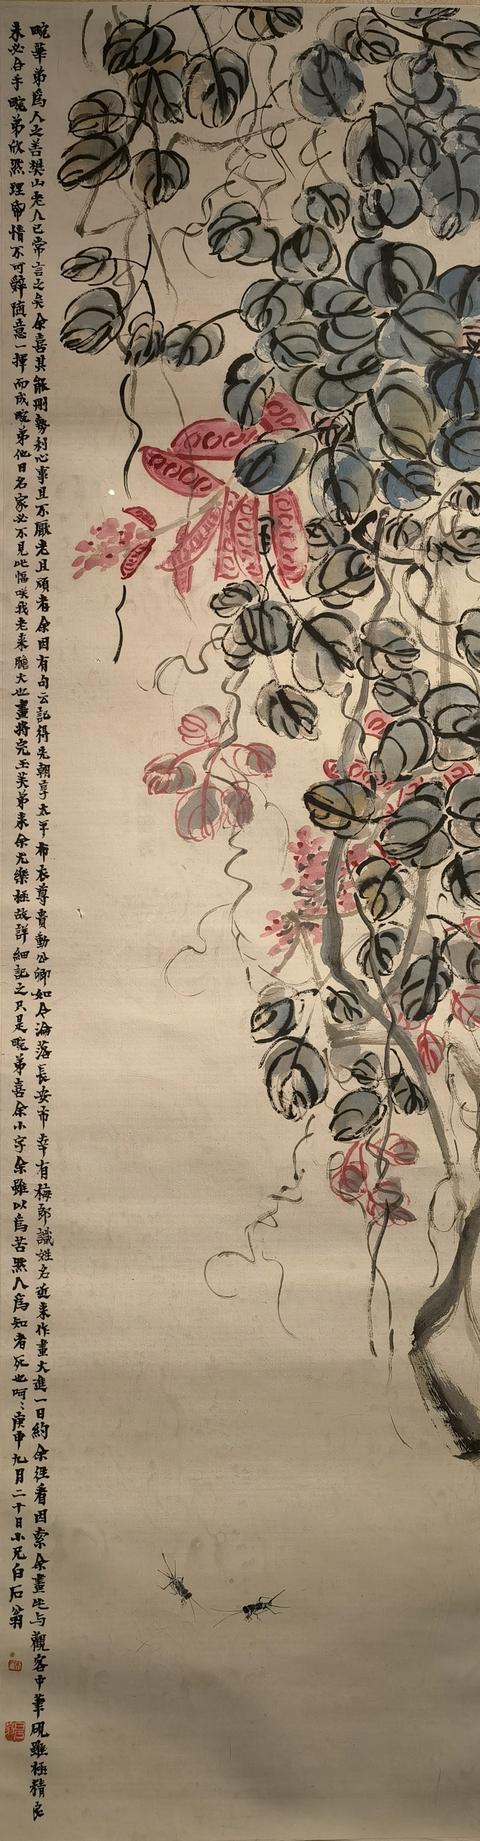 畹華弟為人之善樊山老人已常言之矣余喜其能刪勢利心事且不厭老且頑者余因有句云記得先朝享太平布衣尊貴動公卿如今淪落長安市幸有梅郎識姓名近來作畫大進一日約余往看因索余畫此与觀客中筆硯雖極精良
未必合手畹弟欣然理帋情不可辭隨意一揮而成畹弟他日名家必不見此幅咲我老來膽大也畫將完玉芙弟來余尤樂極故詳細記之只是畹弟喜余小字余雖以為苦然人為知者死也呵呵庚申九月二十日小兄白石翁